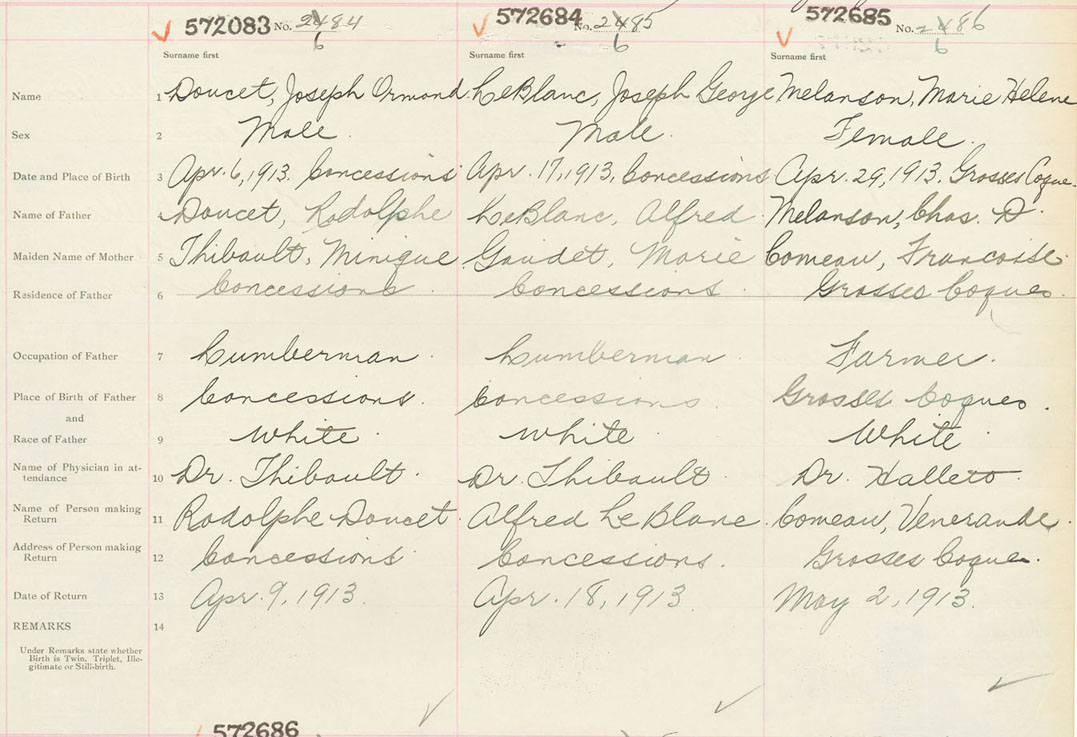 572083 No. 2484 572684 No. 2485 572685 No. 2486
6 6 6
Surname first Surname first Surname first
Name 1 Doucet, Joseph Ormond. LeBlanc, Joseph George Melanson, Marie Helene
Sex 2 Male. Male. Female.
Date and Place of Birth 3 Apr. 6, 1913. Concessions Apr. 17, 1913, Concessions Apr. 29, 1913. Grosses Coque.
Name of Father 4 Doucet, Rodolphe LeBlanc, Alfred. Melanson, Chas. D.
Maiden Name of Mother 5 Thibault, Minique Gaudet, Marie Comeau, Francoise.
Residence of Father 6 Concessions Concessions. Grosses Coques.
Occupation of Father 7 Lumberman. Lumberman. Farmer.
Place of Birth of Father 8 Concessions. Concessions. Grosses Coques.
and
Race of Father 9 White. White. White.
Name of Physician in at-
tendance 10 Dr. Thibault. Dr. Thibault. Dr.
Name of Person making
Return 11 Rodolphe Doucet. Alfred Le Blanc. Comeau, Venerande.
Address of Person making
Return 12 Concessions Concessions. Grosses Coque.
Date of Return 13 Apr. 9, 1913. Apr. 18, 1913. May 2, 1913.
REMARKS 14
Under Remarks state whether
Birth is Twin, Triplet, Ille-
gitimate or Still-birth.
572686